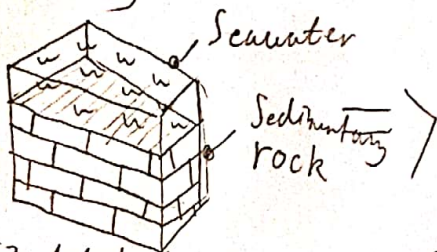 Seawater
Sedimentary
rock